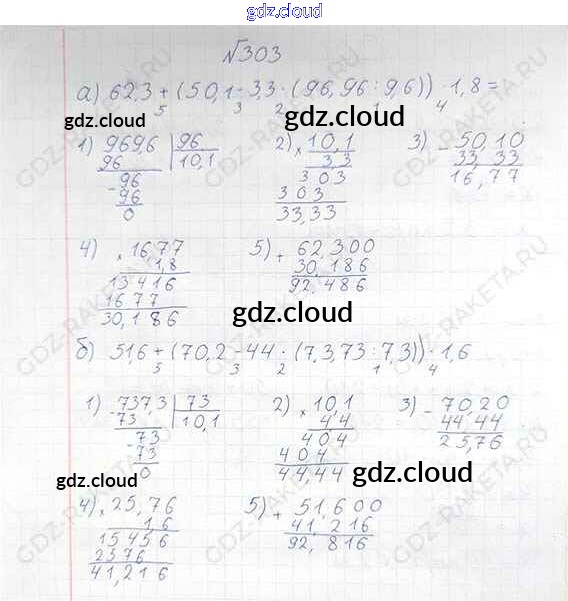 gdz.cloud
№303
а) 62,3 + (50,1 - 3,3 · (96,96 : 96)) · 1,8 =
5 3 2 1 4
gdz.cloud gdz.cloud gdz.cloud
1) 9696 | 96 2) × 10,1 3) - 50,10
96 10,1 3,3 33,33
- 96 303 16,77
96 303
0 33,33
4) × 16,77 5) + 62,300
1,8 30,186
13416 92,486
1677
30,186
gdz.cloud
б) 51,6 + (70,2 - 44 · (7,3,73 : 7,3)) · 1,6
5 3 2 1 4
1) - 737,3 | 73 2) × 10,1 3) - 70,20
73 10,1 4,4 44,44
- 73 404 25,76
73 404
0 44,44
gdz.cloud gdz.cloud
4) × 25,76 5) + 51,600
1,6 41,216
15456 92,816
2576
41,216
GDZ-RAKETA.RU